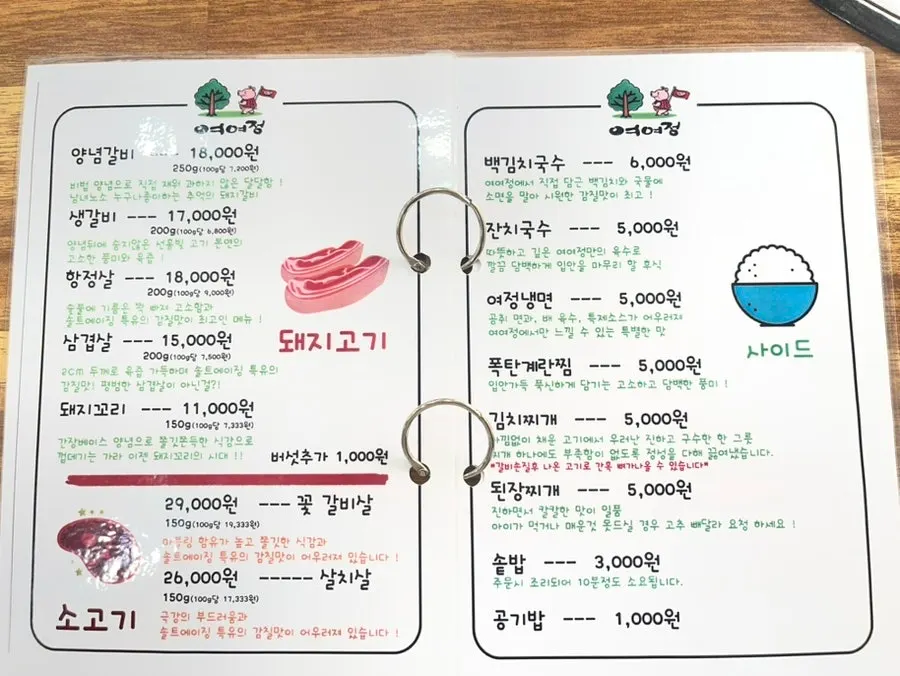 여여정
양념갈비 --- 18,000원
250g(100g당 7,200원)
비법 양념으로 직접 재워 과하지 않은 달달함 !
남녀노소 누구나좋아하는 추억의 돼지갈비
생갈비 --- 17,000원
200g(100g당 8,800원)
양념뒤에 숨지않은 선홍빛 고기 본연의
고소한 풍미와 육즙 !
항정살 --- 18,000원
200g(100g당 9,000원)
숯불에 기름은 쫙 빠져 고소함과
솔트에이징 특유의 감칠맛이 최고인 메뉴 !
삼겹살 --- 15,000원
200g(100g당 7,500원)
2cm 두께로 육즙 가득하며 솔트에이징 특유의
감칠맛! 평범한 삼겹살이 아닌걸?!
돼지꼬리 --- 11,000원
150g(100g당 7,333원)
간장베이스 양념으로 쫄깃쫀득한 식감으로
껍데기는 가라 이젠 돼지꼬리의 시대 !!
버섯추가 1,000원
돼지고기
29,000원 --- 꽃 갈비살
150g(100g당 19,333원)
마블링 함유가 높고 쫄깃한 식감과
솔트에이징 특유의 감칠맛이 어우러져 있습니다 !
26,000원 ----- 살치살
150g(100g당 17,333원)
극강의 부드러움과
솔트에이징 특유의 감칠맛이 어우러져 있습니다 !
소고기
여여정
백김치국수 --- 6,000원
여여정에서 직접 담근 백김치와 국물에
소면을 말아 시원한 감칠맛이 최고 !
잔치국수 --- 5,000원
따뜻하고 깊은 여여정만의 육수로
깔끔 담백하게 입안을 마무리 할 후식
여정냉면 --- 5,000원
공취 면과, 배 육수, 특제소스가 어우러져
여여정에서만 느낄 수 있는 특별한 맛
폭탄계란찜 --- 5,000원
입안가득 푹신하게 담기는 고소하고 담백한 풍미 !
김치찌개 --- 5,000원
아낌없이 채운 고기에서 우러난 진하고 구수한 한 그릇
찌개 하나에도 부족함이 없도록 정성을 다해 끓여냈습니다.
*갈비손질후 나온 고기로 간혹 뼈가나올 수 있습니다*
된장찌개 --- 5,000원
진하면서 칼칼한 맛이 일품
아이가 먹거나 매운걸 못드실 경우 고추 빼달라 요청 하세요 !
솥밥 --- 3,000원
주문시 조리되어 10분정도 소요됩니다.
공기밥 --- 1,000원
사이드